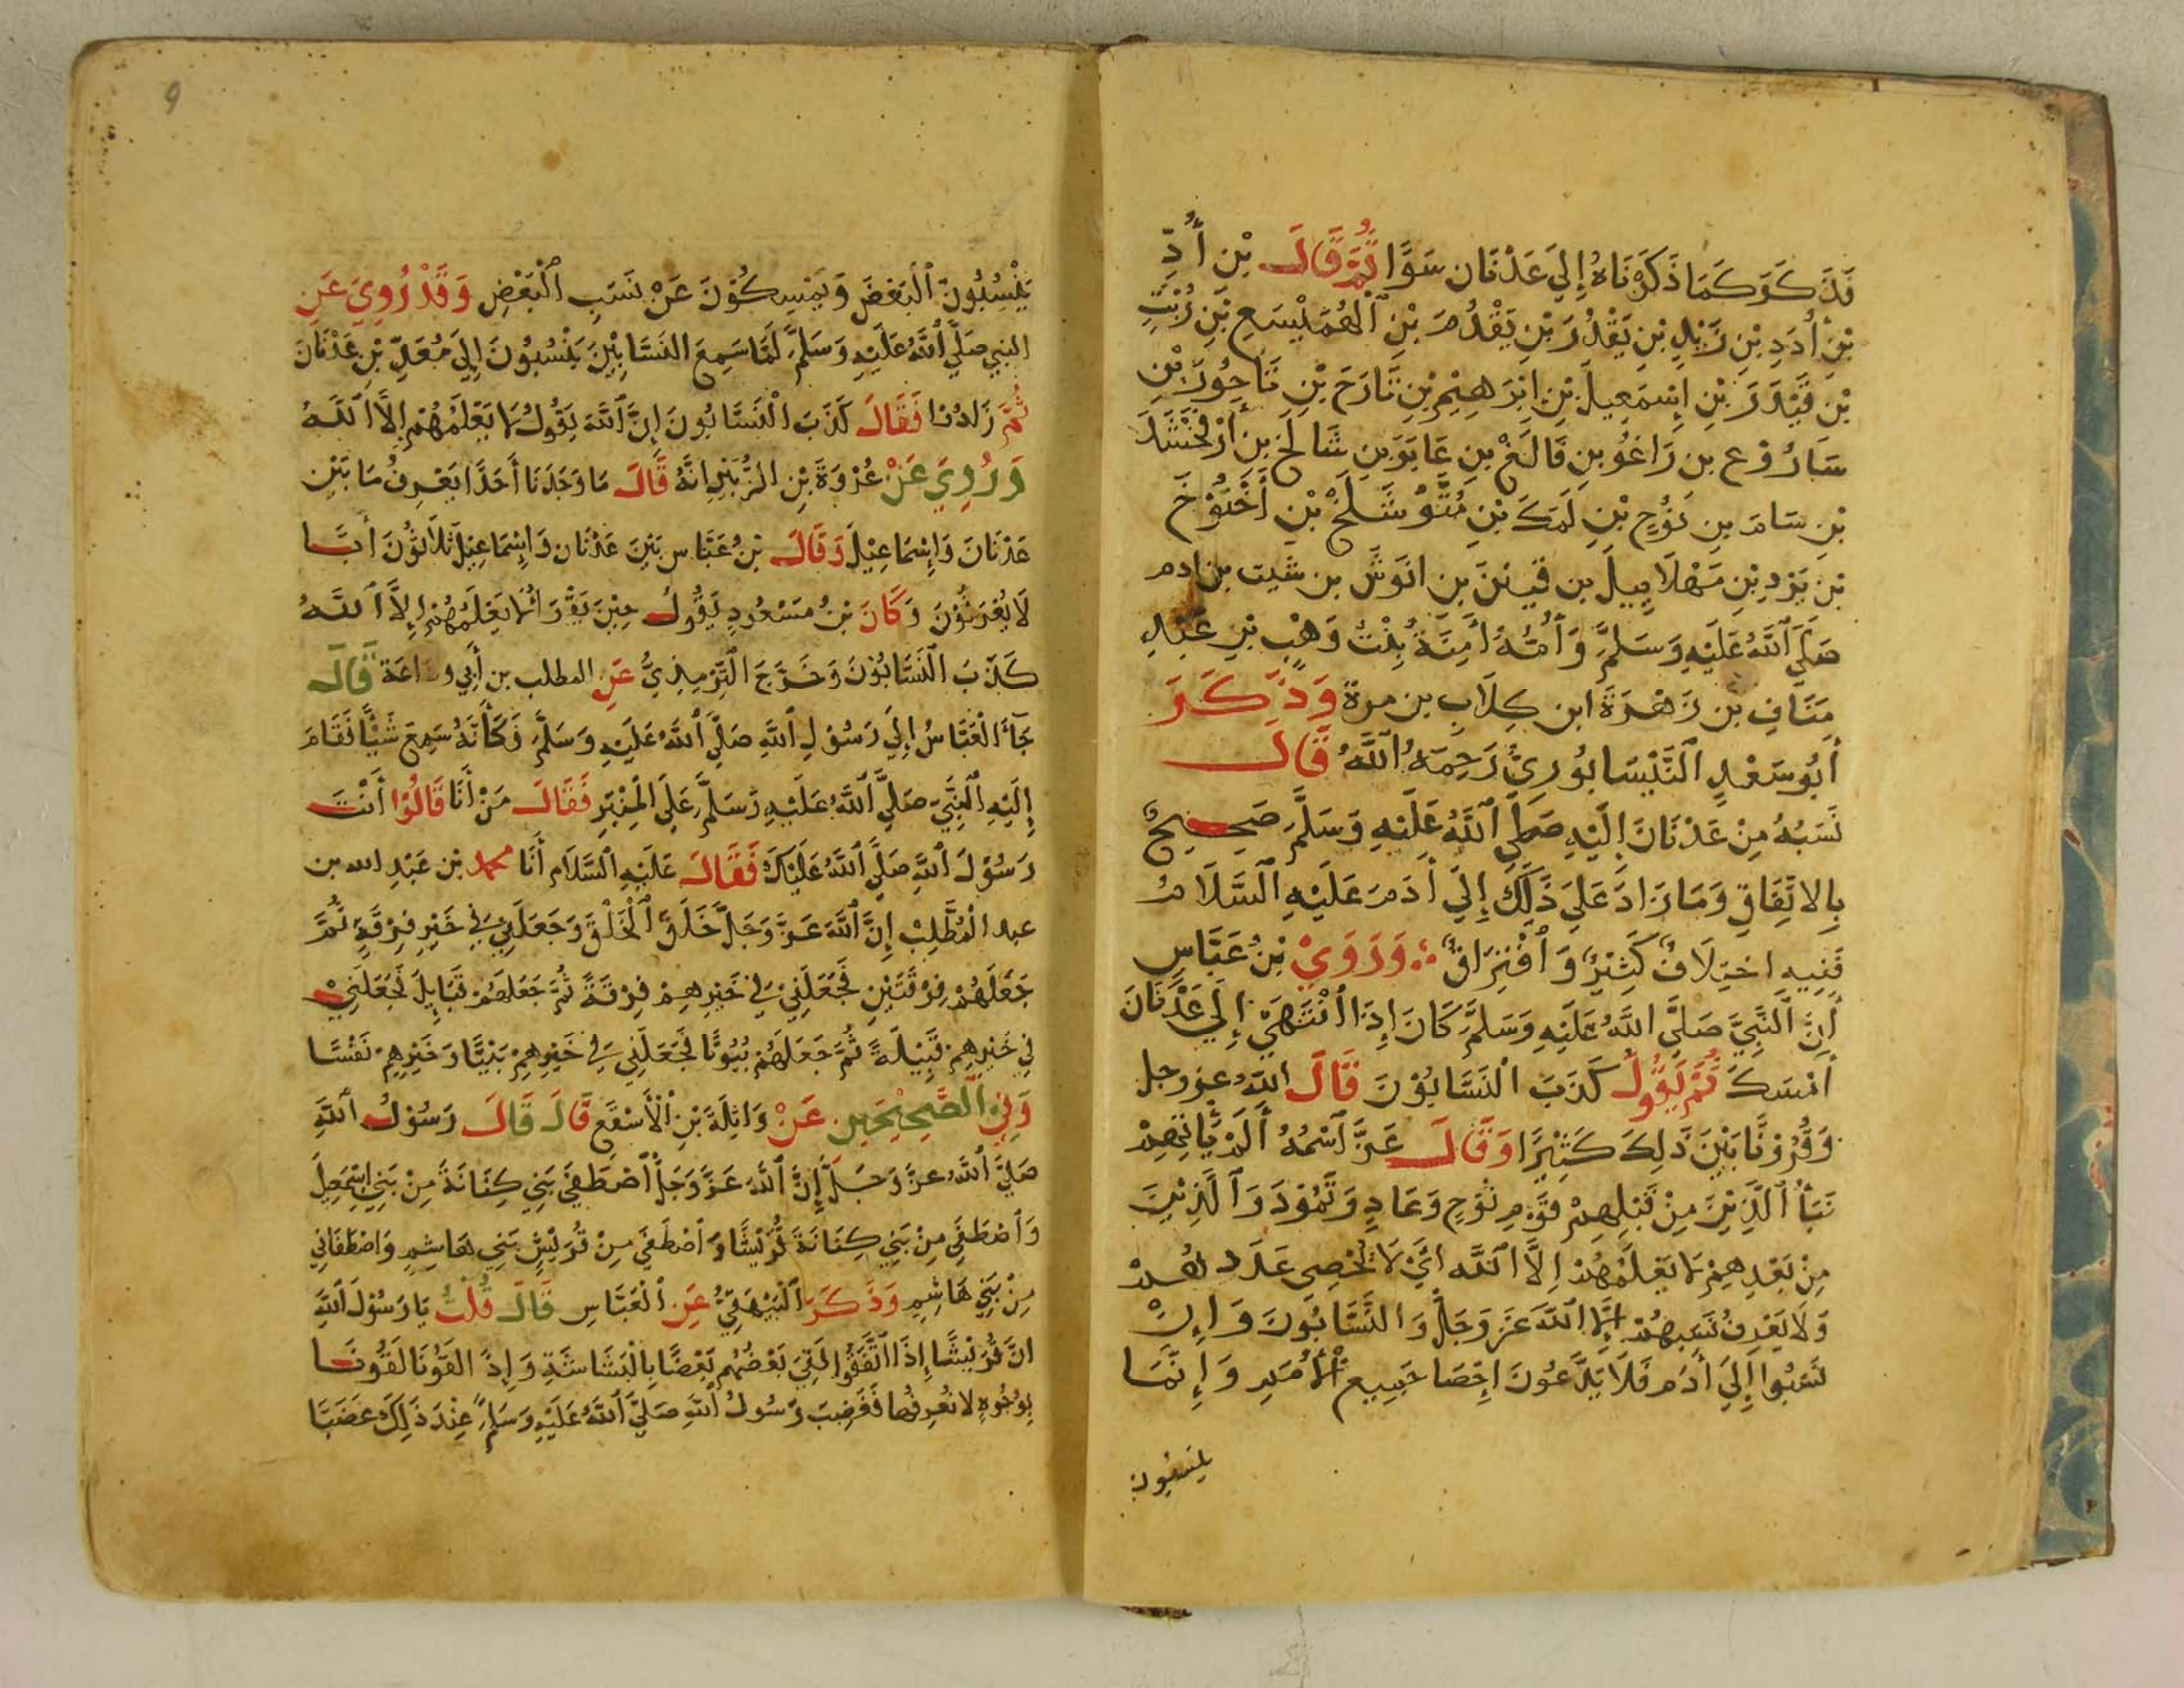 فَذَكَرَ كَمَا ذَكَرْنَاهُ إِلَيَ عَدْنَان سَوَّا ثُمَّ قَالَ بْنِ أُدِّ
بْنِ أُدَدِ بْنِ زَيْدِ بْنِ يَقْدُرَ بْنِ يَقْدُمَ بْنِ الْهُمَيْسَعِ بْنِ نُبْتِ
بْنِ قَيْدَرَ بْنِ إِسْمَعِيلَ بْنِ ابْرَهِيْمِ بْنِ تَارَحَ بْنِ نَاحُورَ بْنِ
سَارُوْع بن رَاغُو بنِ فَالَغْ بنِ عَابَرَ بنِ شَالَخ بن أَرْفَخْشَدَ
بْنِ سَامَ بنِ نُوْحِ بْنِ لَمَكَ بْنِ مُتَّوْشَلَخْ بْنِ أَخْنُوْخَ
بْنِ يَرْدِ بْنِ مَهْلَايِيلَ بن قَيْنَنَ بن انَوَشَ بن شَيت بن ادم
صَلَّيَ اللَّهُ عَلَيْهِ وَسَلَّمَ وَأُمُّهُ أَمِنَةُ بِنْتُ وَهْبِ بْنِ عَبْدِ
مَنَافِ بْن زَهْرَةَ ابن كِلَابِ بن مرة وَذَكَرَ
أَبُو سَعْدِ النَّيْسَابُورِيُّ رَحِمَهُ اللَّهُ قَالَ
نَسَبُهُ مِنْ عَدْنَانَ إِلَيْهِ صَلَّي اللَّهُ عَلَيْهِ وَسَلَّمَ صَحِيحٌ
بِالاتِّفَاقِ وَمَا زَادَ عَلَيَ ذَلِكَ إِلَيَ أَدَمَ عَلَيْهِ السَّلَامُ
فَفِيهِ اخْتِلَافٌ كَثِيْرٌ وَافْتِرَاقٌ وَرَوَيْ بْنُ عَبَّاسِ
أَنَّ النَّبِيَّ صَلَّيَ اللَّهُ عَلَيْهِ وَسَلَّمَ كَانَ إِذَا انْتَهَيَ إِلَيَ عَدْنَانَ
أَمْسَكَ ثُمَّ يَقُولُ كَذَبَ النَّسَّابُوْنَ قَالَ اللهُ عز وجل
وَقُرُوْنًا بَيْنَ ذَلِكَ كَثِيْرًا وَقَالَ عَزَّ اسْمُهُ أَلَمْ يَاتِهِمْ
نَبَأُ الَّذِيْنَ مِنْ قَبْلِهِمْ قَوْمِ نُوْحٍ وَعَادٍ وَثَمُوْدَ وَالَّذِيْنَ
مِنْ بَعْدِهِمْ لَا يَعْلَمُهُمْ اِلَّا اللَّه ايْ لَا يُحْصِي عَدَدهُمْ
وَلَا يَعْرِفُ نَسَبِهُمْ إِلَّا اللَّهَ عَزَ وَجَلَّ وَالنَّسَّابُونَ وَإِنْ
نَسَبُوا إِلَيَ أَدَم فَلَا يَدَّعُونَ إِحْصَا جَمِيعِ الأُمَمِ وَإِنَّمَا
ينسبون
9
يَنْسُبُونَ الْبَعْضَ وَيَمْسِكُوْنَ عَنْ نَسَبِ الْبَعْضِ وَقَدْ رُوِيَ عَنِ
النبي صَلَّيَ اللَّهُ عَلَيْهِ وَسَلَّمَ لَمَّا سَمِعَ النَسَّابِيْنَ يَنْسُبُونَ إِلَيَ مُعَدِّ بْنِ عَدْنَانَ
ثُمَّ زَادُوا فَقَالَ كَذَبَ النَسَّابُونَ إِنَّ اللَّهَ يَقُولُ لَا يَعْلَمُهُمْ إِلَّا اللَّهُ
وَرُوِيَ عَنْ عُرْوَةَ بْنِ الزُّبَيْرِ انَّهُ قَالَ مَا وَجَدْنَا أَحَدًا يَعْرِفُ مَا بَيْنَ
عَدْنَانَ وَإِسْمَاعِيْلَ وَقَالَ بْنُ عَبَّاس بَيْنَ عَدْنَان وَإِسْمَاعِيْلَ ثَلَاثُوْنَ أَبًا
لَا يُعْرَفُوْنَ وَكَانَ بْنُ مَسْعُودٍ يَقُولُ حِيْنَ يَقْرَاُ لَا يَعْلَمُهُمْ إِلَّا اللَّهُ
كَذَبَ النَسَّابُوْنَ وَخَرَّجَ التِّرْمِذِيُّ عَنِ المطلب بن أَبِي وداعَة قَالَ
جَاءَ الْعَبَّاسُ إِلَيَ رَسُوْلِ اللَّهِ صَلَّيَ اللَّهُ عَلَيْهِ وَسَلَّمَ وَكَأَنَّهُ سَمِعَ شَيْأً فَقَامَ
إِلَيْهِ النَّبِيَّ صَلَّيَ اللَّهُ عَلَيْهِ وَسَلَّمَ عَلَيَ الْمِنْبَرِ فَقَالَ مَنْ أَنَا قَالُوْا أَنْتَ
رَسُوْلَ اللَّهِ صَلَّي اللَّهُ عَلَيْكَ فَقَالَ عَلَيْهِ السَّلَام أَنَا محمد بْن عَبْدِ الله بن
عبد الْمُطَّلِبْ إِنَّ اللَّهَ عَزَّ وَجَلَّ خَلَقَ الْخَلْقَ وَجَعَلَنِيْ فِي خَيْرِ فِرْقَةٍ ثُمَّ
جَعَلَهُمْ فِرْقَتَيْنِ فَجَعَلَنِيْ فِي خَيْرِهِمْ فِرْقَةً ثُمَّ جَعَلَهُمْ قَبَايِلَ فَجَعَلَنِيْ
فِي خَيْرِهِمْ قَبِيْلَةً ثُمَّ جَعَلَهُمْ بُيُوْتًا فَجَعَلَنِي فِي خَيْرِهِمْ بَيْتًا وَخَيْرِهِمْ نَفْسًا
وَفِي الصَّحِيْحَيْنِ عَنْ وَاثِلَةَ بْنِ الْأَسْقَعِ قَالَ قَالَ رَسُوْلُ اللَّهِ
صَلَّيَ اللَّهُ عزَّ وَجَلَّ إِنَّ اللَّهَ عَزَّ وَجَلَّ اصْطَفَيَ بَنِي كِنَانَةَ مِنْ بَنِي إِسْمَعِيلَ
وَاصْطَفَي مِنْ بَنِي كِنَانَةَ قُرَيْشًا وَاصْطَفَيَ مِنْ قُرَيْشٍ بَنِي هَاشِمِ وَاصْطَفَانِي
مِنْ بَنِي هَاشِمِ وَذَكَرَ الْبَيْهَقِيُّ عَنِ الْعَبَّاسِ قَالَ قُلْتُ يَا رَسُوْلَ اللَّهِ
انَّ قُرَيْشًا إِذَا اتَّفَقُوْا لَقِيَ بَعْضُهُم بَعْضًا بِالْبَشَاشَةِ وَإِذَ الْقَوْنَا لَقُوْنَا
بِوُجُوْهٍ لا نُعْرِفُهَا فَغَضِبَ رَسُولُ اللَّهِ صَلَّيَ اللَّهُ عَلَيْهِ وَسَلَّمَ عِنْدَ ذَلِكَ غَضَبًا